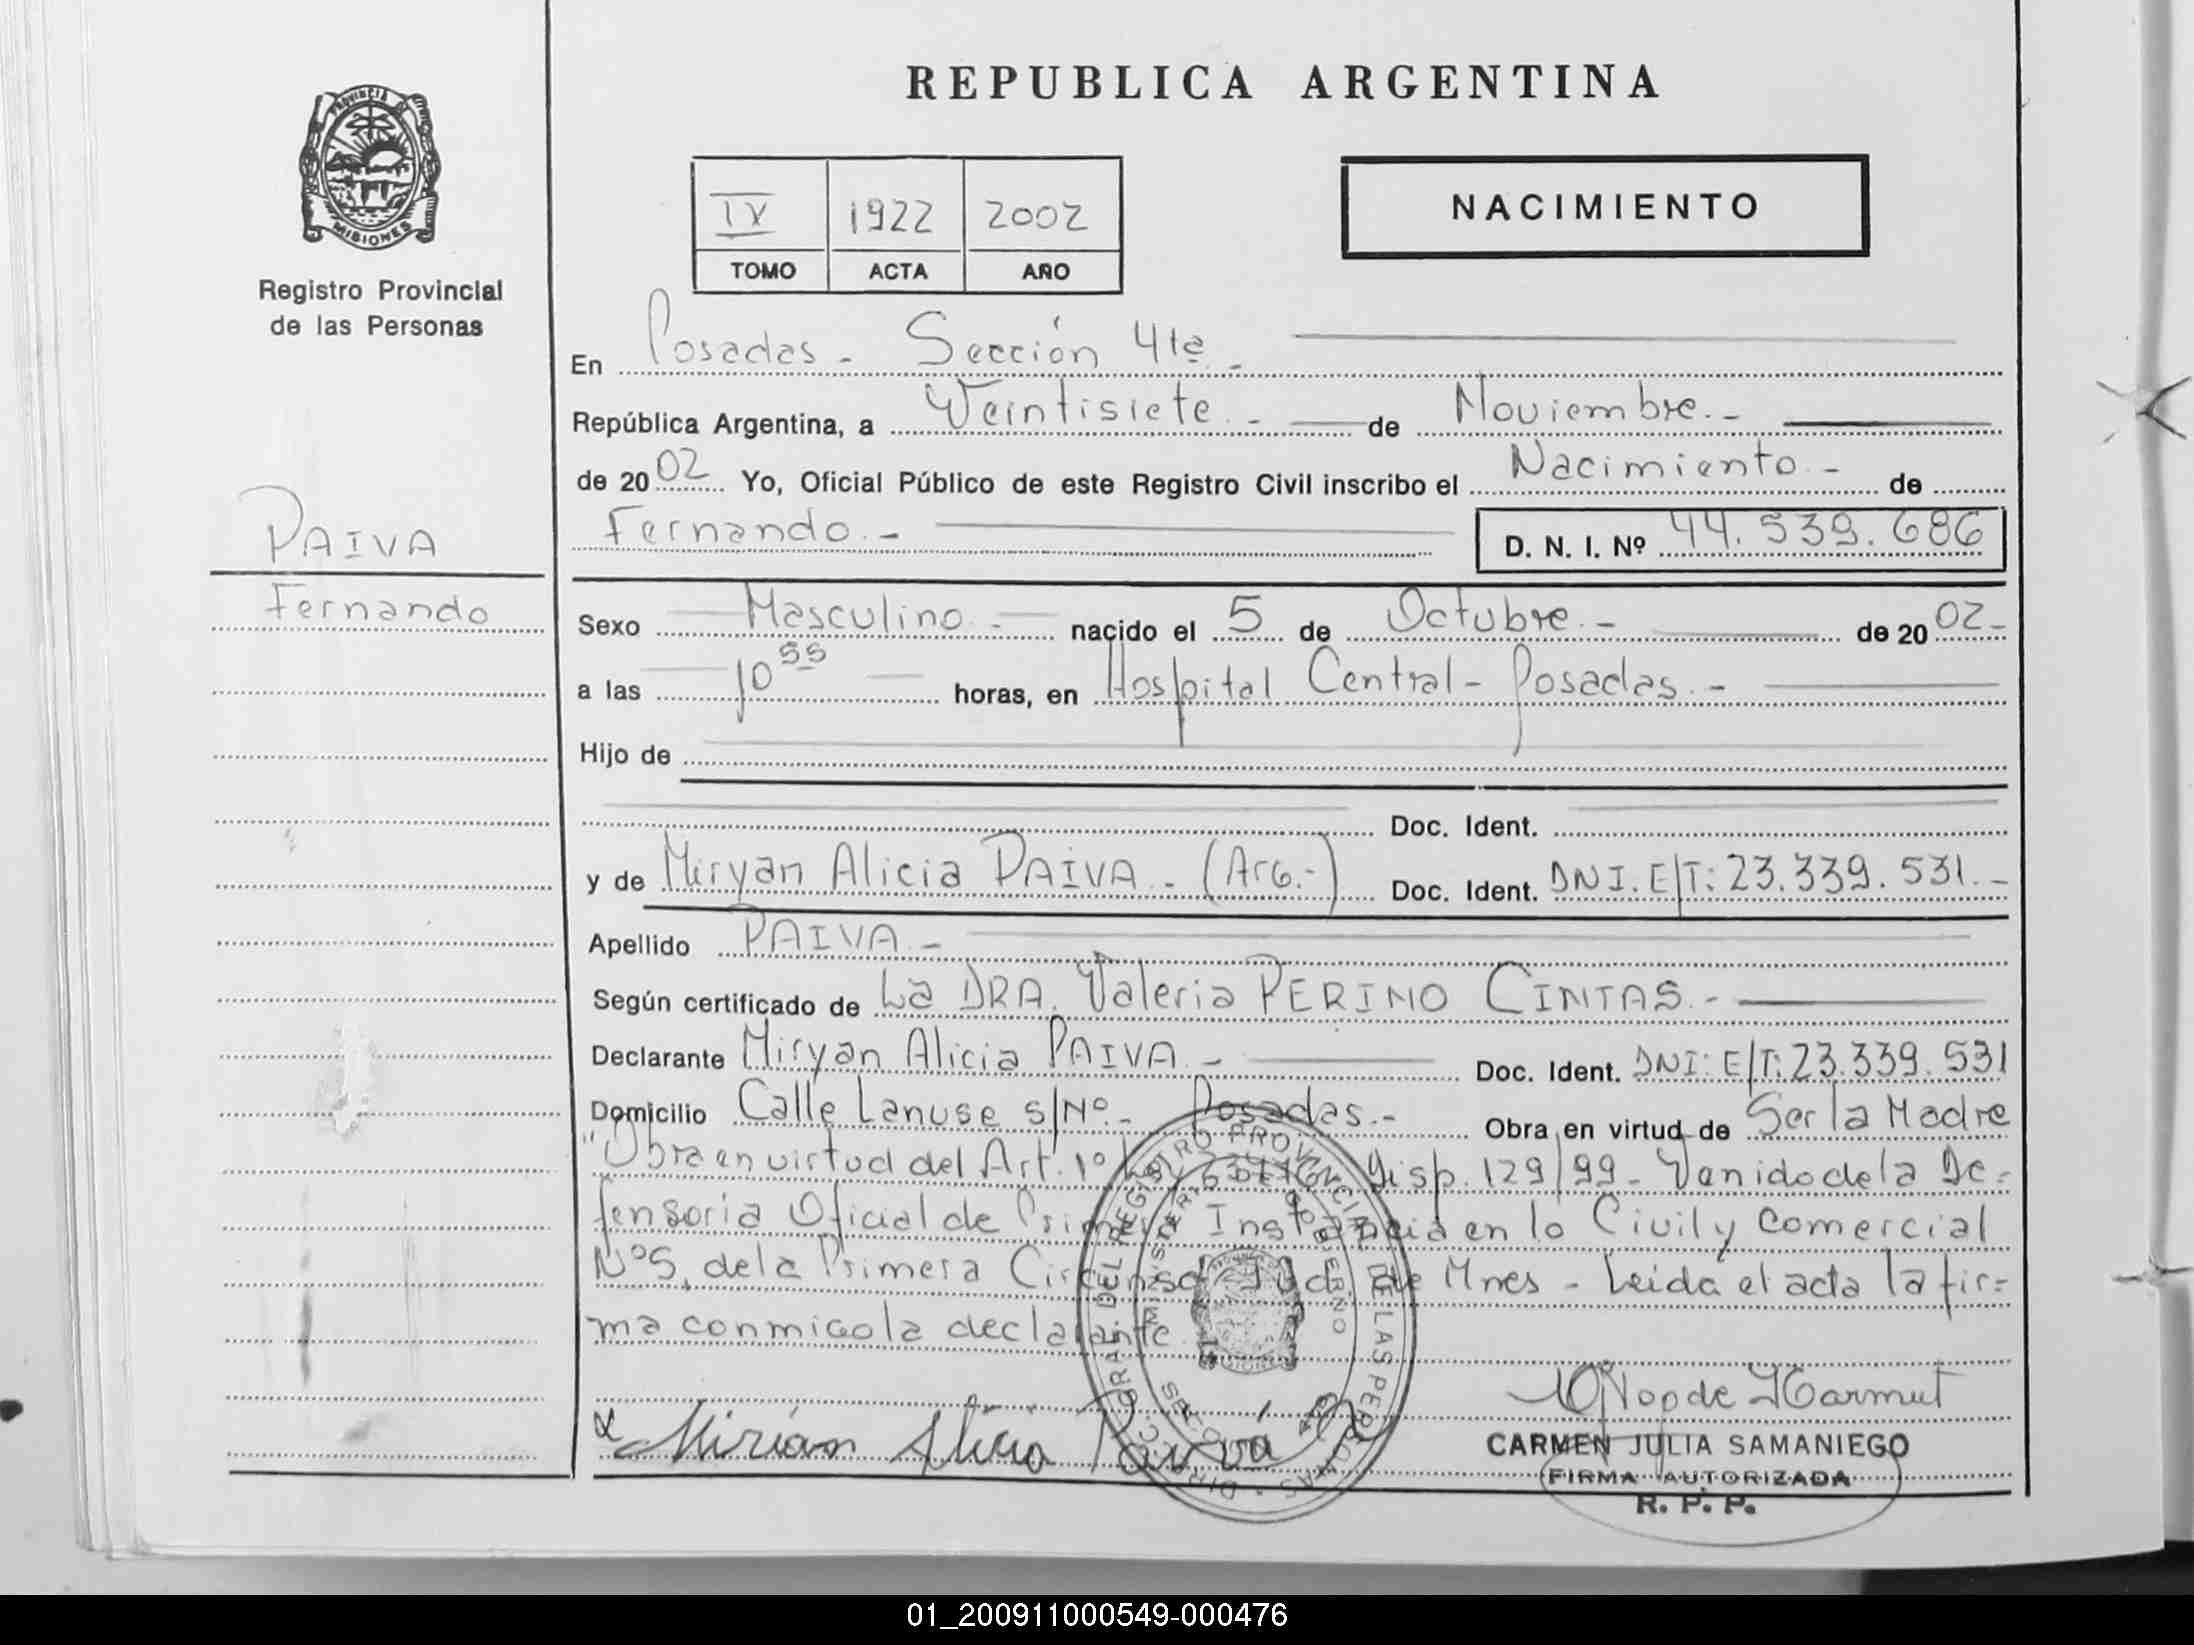 REPUBLICA ARGENTINA
PROVINCIA
MISIONES
Registro Provincial
de las Personas
IV 1922 2002
TOMO ACTA AÑO
NACIMIENTO
En Posadas - Sección 4ta -
República Argentina, a Veintisiete. - de Noviembre. -
de 20 02 Yo, Oficial Público de este Registro Civil inscribo el Nacimiento - de
Fernando. - D. N. I. Nº 44.539.686
PAIVA
Fernando
Sexo Masculino. - nacido el 5 de Octubre. - de 20 02 -
a las 10 55 horas, en Hospital Central - Posadas. -
Hijo de
Doc. Ident.
y de Miryan Alicia PAIVA - (Arg. -) Doc. Ident. DNI. E/T: 23.339.531. -
Apellido PAIVA -
Según certificado de La DRA. Valeria PERINO CINTAS. -
Declarante Miryan Alicia PAIVA - Doc. Ident. DNI: E/T: 23.339.531
Domicilio Calle Lanuse s/Nº - Posadas. - Obra en virtud de Ser la Madre
"Obra en virtud del Art. 1º Disp. 129/99 - Venido de la De=
fensoria Oficial de Primera Instancia en lo Civil y Comercial
Nº5, de la Primera Circunsc. Jud. de Mnes - Leida el acta la fir=
ma conmigo la declarante
Mirián Alicia Paiva
CARMEN JULIA SAMANIEGO
FIRMA AUTORIZADA
R. P. P.
01_200911000549-000476